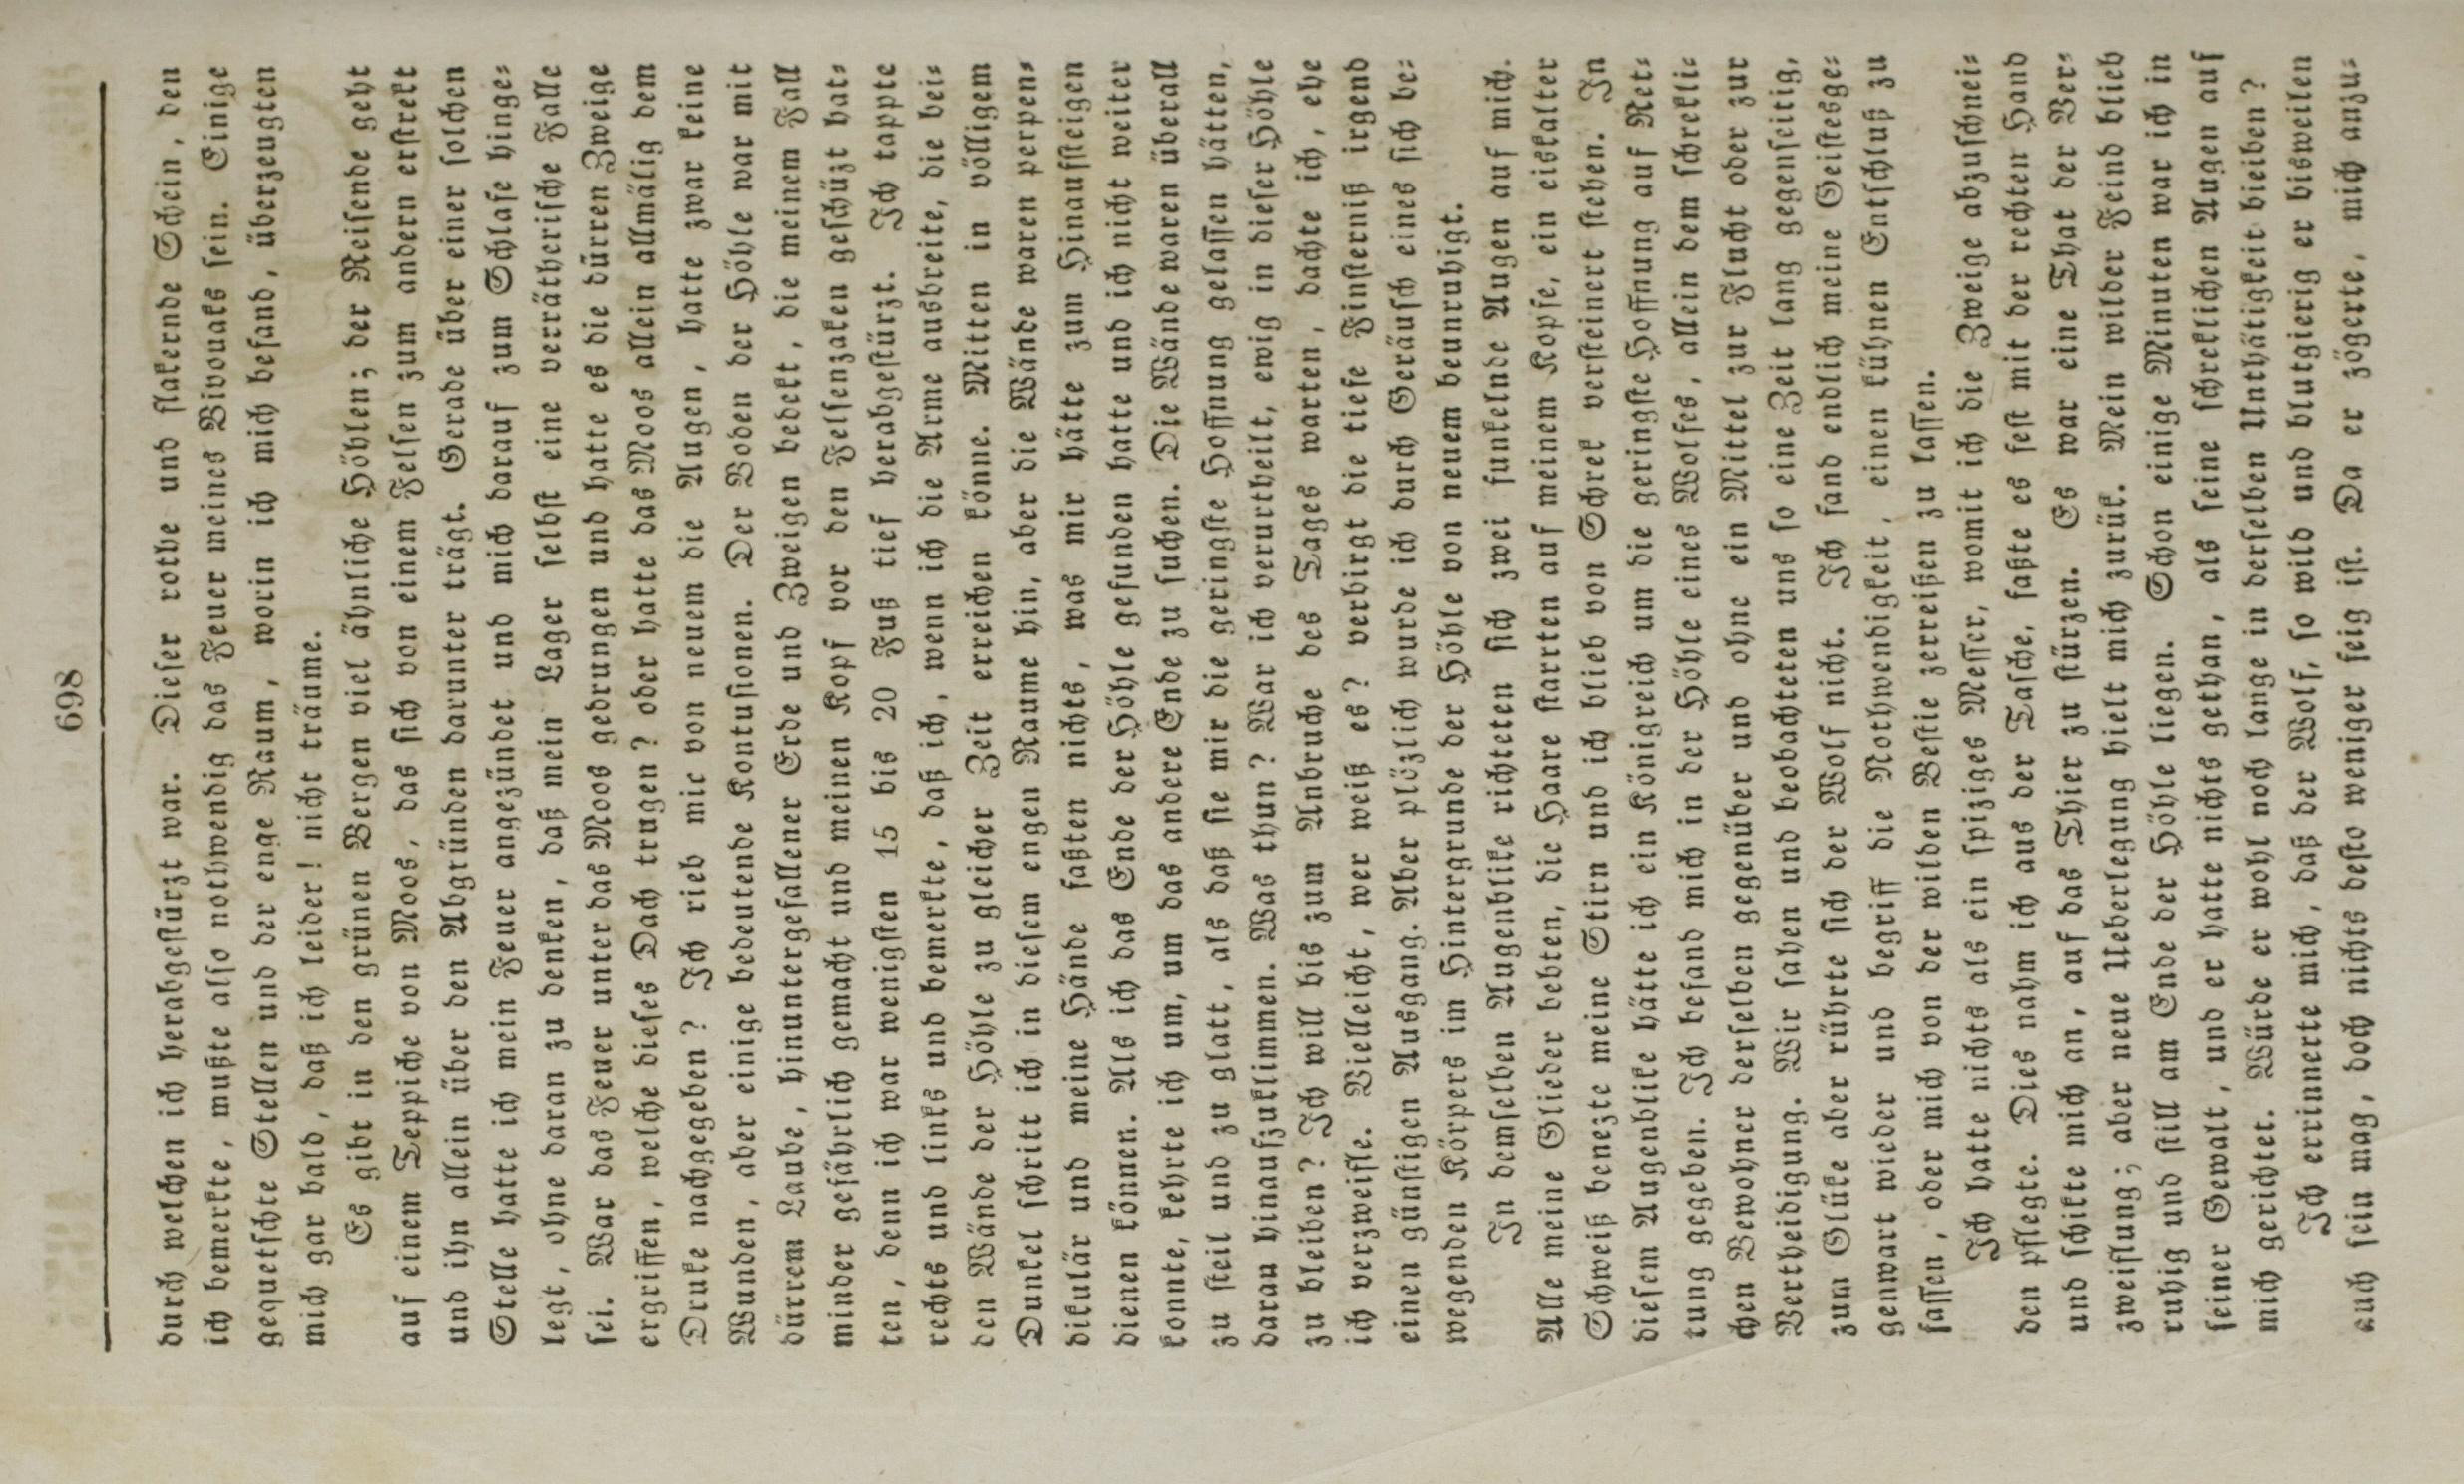 698
durch welchen ich herabgestürzt war. Dieser rothe und flakernde Schein, den
ich bemerkte, mußte also nothwendig das Feuer meines Bivouaks sein. Einige
gequetschte Stellen und der enge Raum, worin ich mich befand, überzeugten
mich gar bald, daß ich leider! nicht träume.
Es gibt in den grünen Bergen viel ähnliche Höhlen; der Reisende geht
auf einem Teppiche von Moos, das sich von einem Felsen zum andern erstrekt
und ihn allein über den Abgründen darunter trägt. Gerade über einer solchen
Stelle hatte ich mein Feuer angezündet und mich darauf zum Schlafe hinge-
legt, ohne daran zu denken, daß mein Lager selbst eine verrätherische Falle
sei. War das Feuer unter das Moos gedrungen und hatte es die dürren Zweige
ergriffen, welche dieses Dach trugen? oder hatte das Moos allein allmälig dem
Druke nachgegeben? Ich rieb mir von neuem die Augen, hatte zwar keine
Wunden, aber einige bedeutende Kontusionen. Der Boden der Höhle war mit
dürrem Laube, hinuntergefallener Erde und Zweigen bedekt, die meinem Fall
minder gefährlich gemacht und meinen Kopf vor den Felsenzaken geschüzt hat-
ten, denn ich war wenigsten 15 bis 20 Fuß tief herabgestürzt. Ich tappte
rechts und links und bemerkte, daß ich, wenn ich die Arme ausbreite, die bei-
den Wände der Höhle zu gleicher Zeit erreichen könne. Mitten in völligem
Dunkel schritt ich in diesem engen Raume hin, aber die Wände waren perpen-
dikulär und meine Hände faßten nichts, was mir hätte zum Hinaufsteigen
dienen können. Als ich das Ende der Höhle gefunden hatte und ich nicht weiter
konnte, kehrte ich um, um das andere Ende zu suchen. Die Wände waren überall
zu steil und zu glatt, als daß sie mir die geringste Hoffnung gelassen hätten,
daran hinaufzuklimmen. Was thun? War ich verurtheilt, ewig in dieser Höhle
zu bleiben? Ich will bis zum Anbruche des Tages warten, dachte ich, ehe
ich verzweifle. Vielleicht, wer weiß es? verbirgt die tiefe Finsterniß irgend
einen günstigen Ausgang. Aber plözlich wurde ich durch Geräusch eines sich be-
wegenden Körpers im Hintergrunde der Höhle von neuem beunruhigt.
In demselben Augenblike richteten sich zwei funkelnde Augen auf mich.
Alle meine Glieder bebten, die Haare starrten auf meinem Kopfe, ein eiskalter
Schweiß benezte meine Stirn und ich blieb von Schrek versteinert stehen. In
diesem Augenblike hätte ich ein Königreich um die geringste Hoffnung auf Ret-
tung gegeben. Ich befand mich in der Höhle eines Wolfes, allein dem schrekli-
chen Bewohner derselben gegenüber und ohne ein Mittel zur Flucht oder zur
Vertheidigung. Wir sahen und beobachteten uns so eine Zeit lang gegenseitig,
zum Glüke aber rührte sich der Wolf nicht. Ich fand endlich meine Geistesge-
genwart wieder und begriff die Nothwendigkeit, einen kühnen Entschluß zu
fassen, oder mich von der wilden Bestie zerreißen zu lassen.
Ich hatte nichts als ein spiziges Messer, womit ich die Zweige abzuschnei-
den pflegte. Dies nahm ich aus der Tasche, faßte es fest mit der rechten Hand
und schikte mich an, auf das Thier zu stürzen. Es war eine That der Ver-
zweiflung; aber neue Ueberlegung hielt mich zurük. Mein wilder Feind blieb
ruhig und still am Ende der Höhle liegen. Schon einige Minuten war ich in
seiner Gewalt, und er hatte nichts gethan, als seine schreklichen Augen auf
mich gerichtet. Würde er wohl noch lange in derselben Unthätigkeit bleiben?
Ich errinnerte mich, daß der Wolf, so wild und blutgierig er bisweilen
auch sein mag, doch nichts desto weniger feig ist. Da er zögerte, mich anzu-